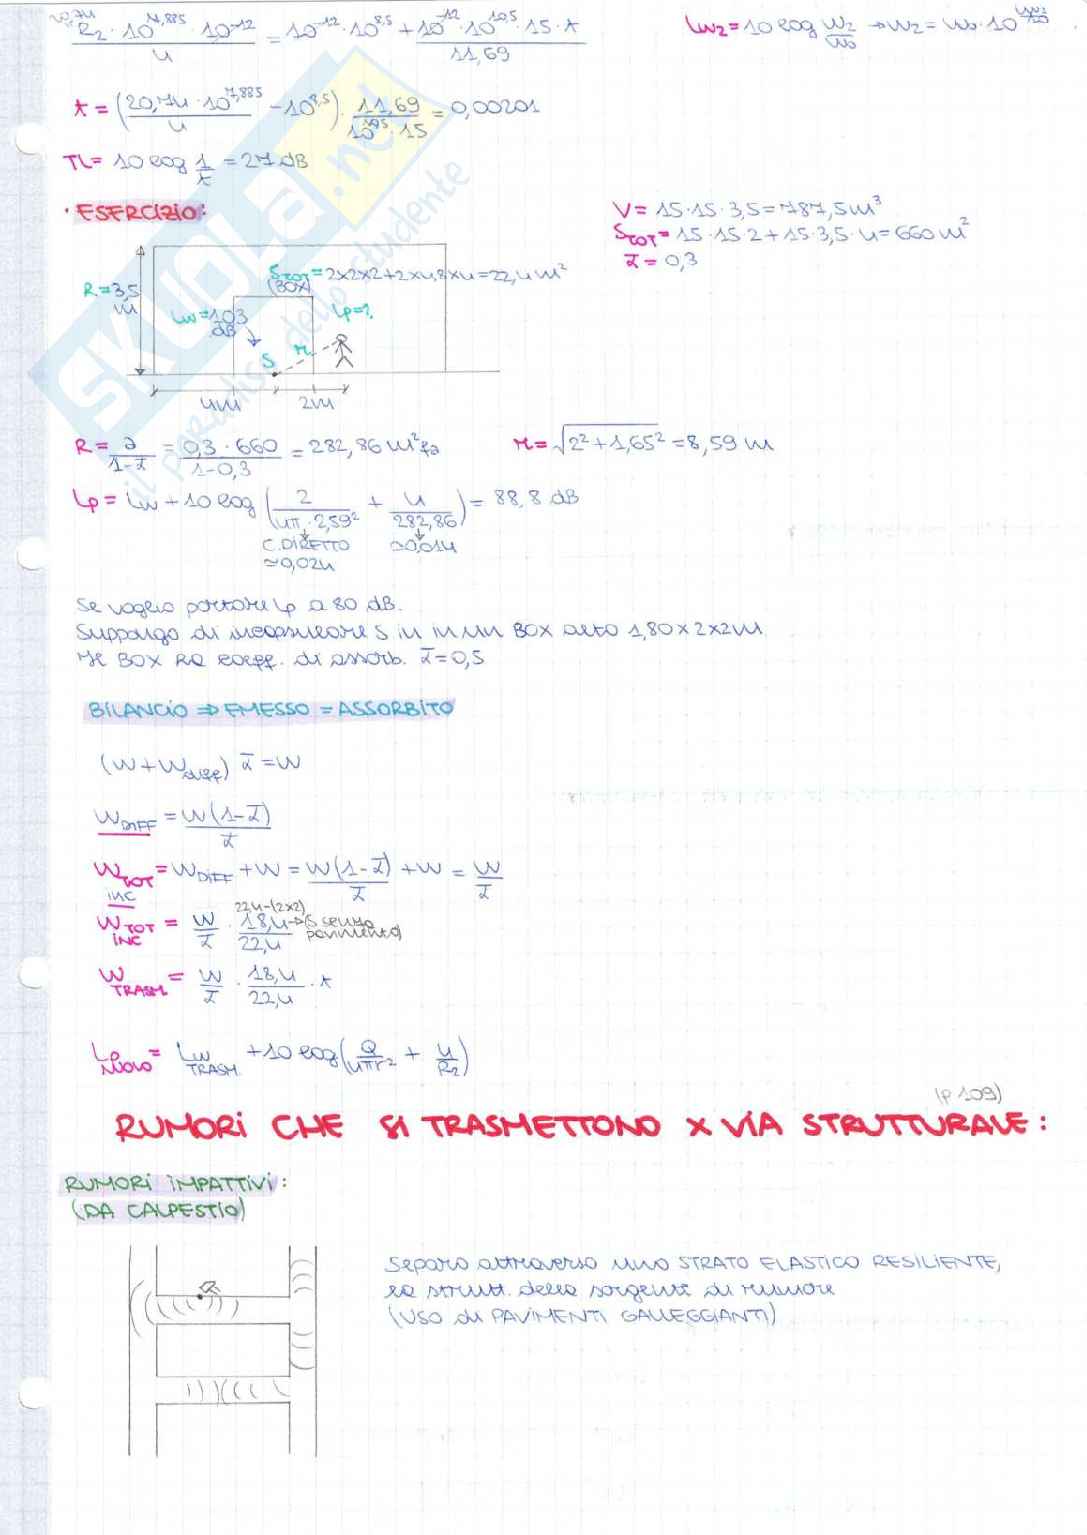 20,74
R₂ · 10^7,885 · 10^-12 / 4 = 10^-12 · 10^8,5 + 10^-12 · 10^10,5 · 15 · t / 11,69
Lw2 = 10 log W2/W0 → W2 = W0 · 10^Lw2/10
t = (20,74 · 10^7,885 / 4 - 10^8,5) · 11,69 / 10^10,5 · 15 = 0,00201
TL = 10 log 1/t = 27 dB
· ESERCIZIO:
V = 15·15·3,5 = 787,5 m³
STOT = 15·15·2 + 15·3,5·4 = 660 m²
ᾱ = 0,3
STOT = 2x2x2+2x1,8x4 = 22,4 m²
(BOX)
R = 3,5 m
Lw = 103 dB
Lp = ?
S
r
4m
2m
R = a / 1-ᾱ = 0,3 · 660 / 1-0,3 = 282,86 m² fa
r = √2²+1,65² = 8,59 m
Lp = Lw + 10 log (2 / 4π · 2,59² + 4 / 282,86) = 88,8 dB
C. DIRETTO ≃0,014
≃0,024
Se voglio portare Lp a 80 dB.
Suppongo di incapsulare S in un BOX alto 1,80x2x2m
Il BOX ha coeff. di assorb. ᾱ = 0,5
BILANCIO ⇒ EMESSO = ASSORBITO
(W + Wdiff) ᾱ = W
WDIFF = W(1-ᾱ) / ᾱ
WTOT INC = WDIFF + W = W(1-ᾱ) / ᾱ + W = W / ᾱ
22,4-(2x2)
WTOT INC = W / ᾱ · 18,4 / 22,4 → (S senza pavimento)
WTRASM = W / ᾱ · 18,4 / 22,4 · t
Lp NUOVO = Lw TRASM + 10 log (Q / 4πr² + 4 / R2)
(P 109)
RUMORI CHE SI TRASMETTONO X VIA STRUTTURALE:
RUMORI IMPATTIVI:
(DA CALPESTIO)
Separo attraverso uno STRATO ELASTICO RESILIENTE,
la strutt. della sorgente di rumore
(USO di PAVIMENTI GALLEGGIANTI)
SKUOLA.net
il paradiso dello studente